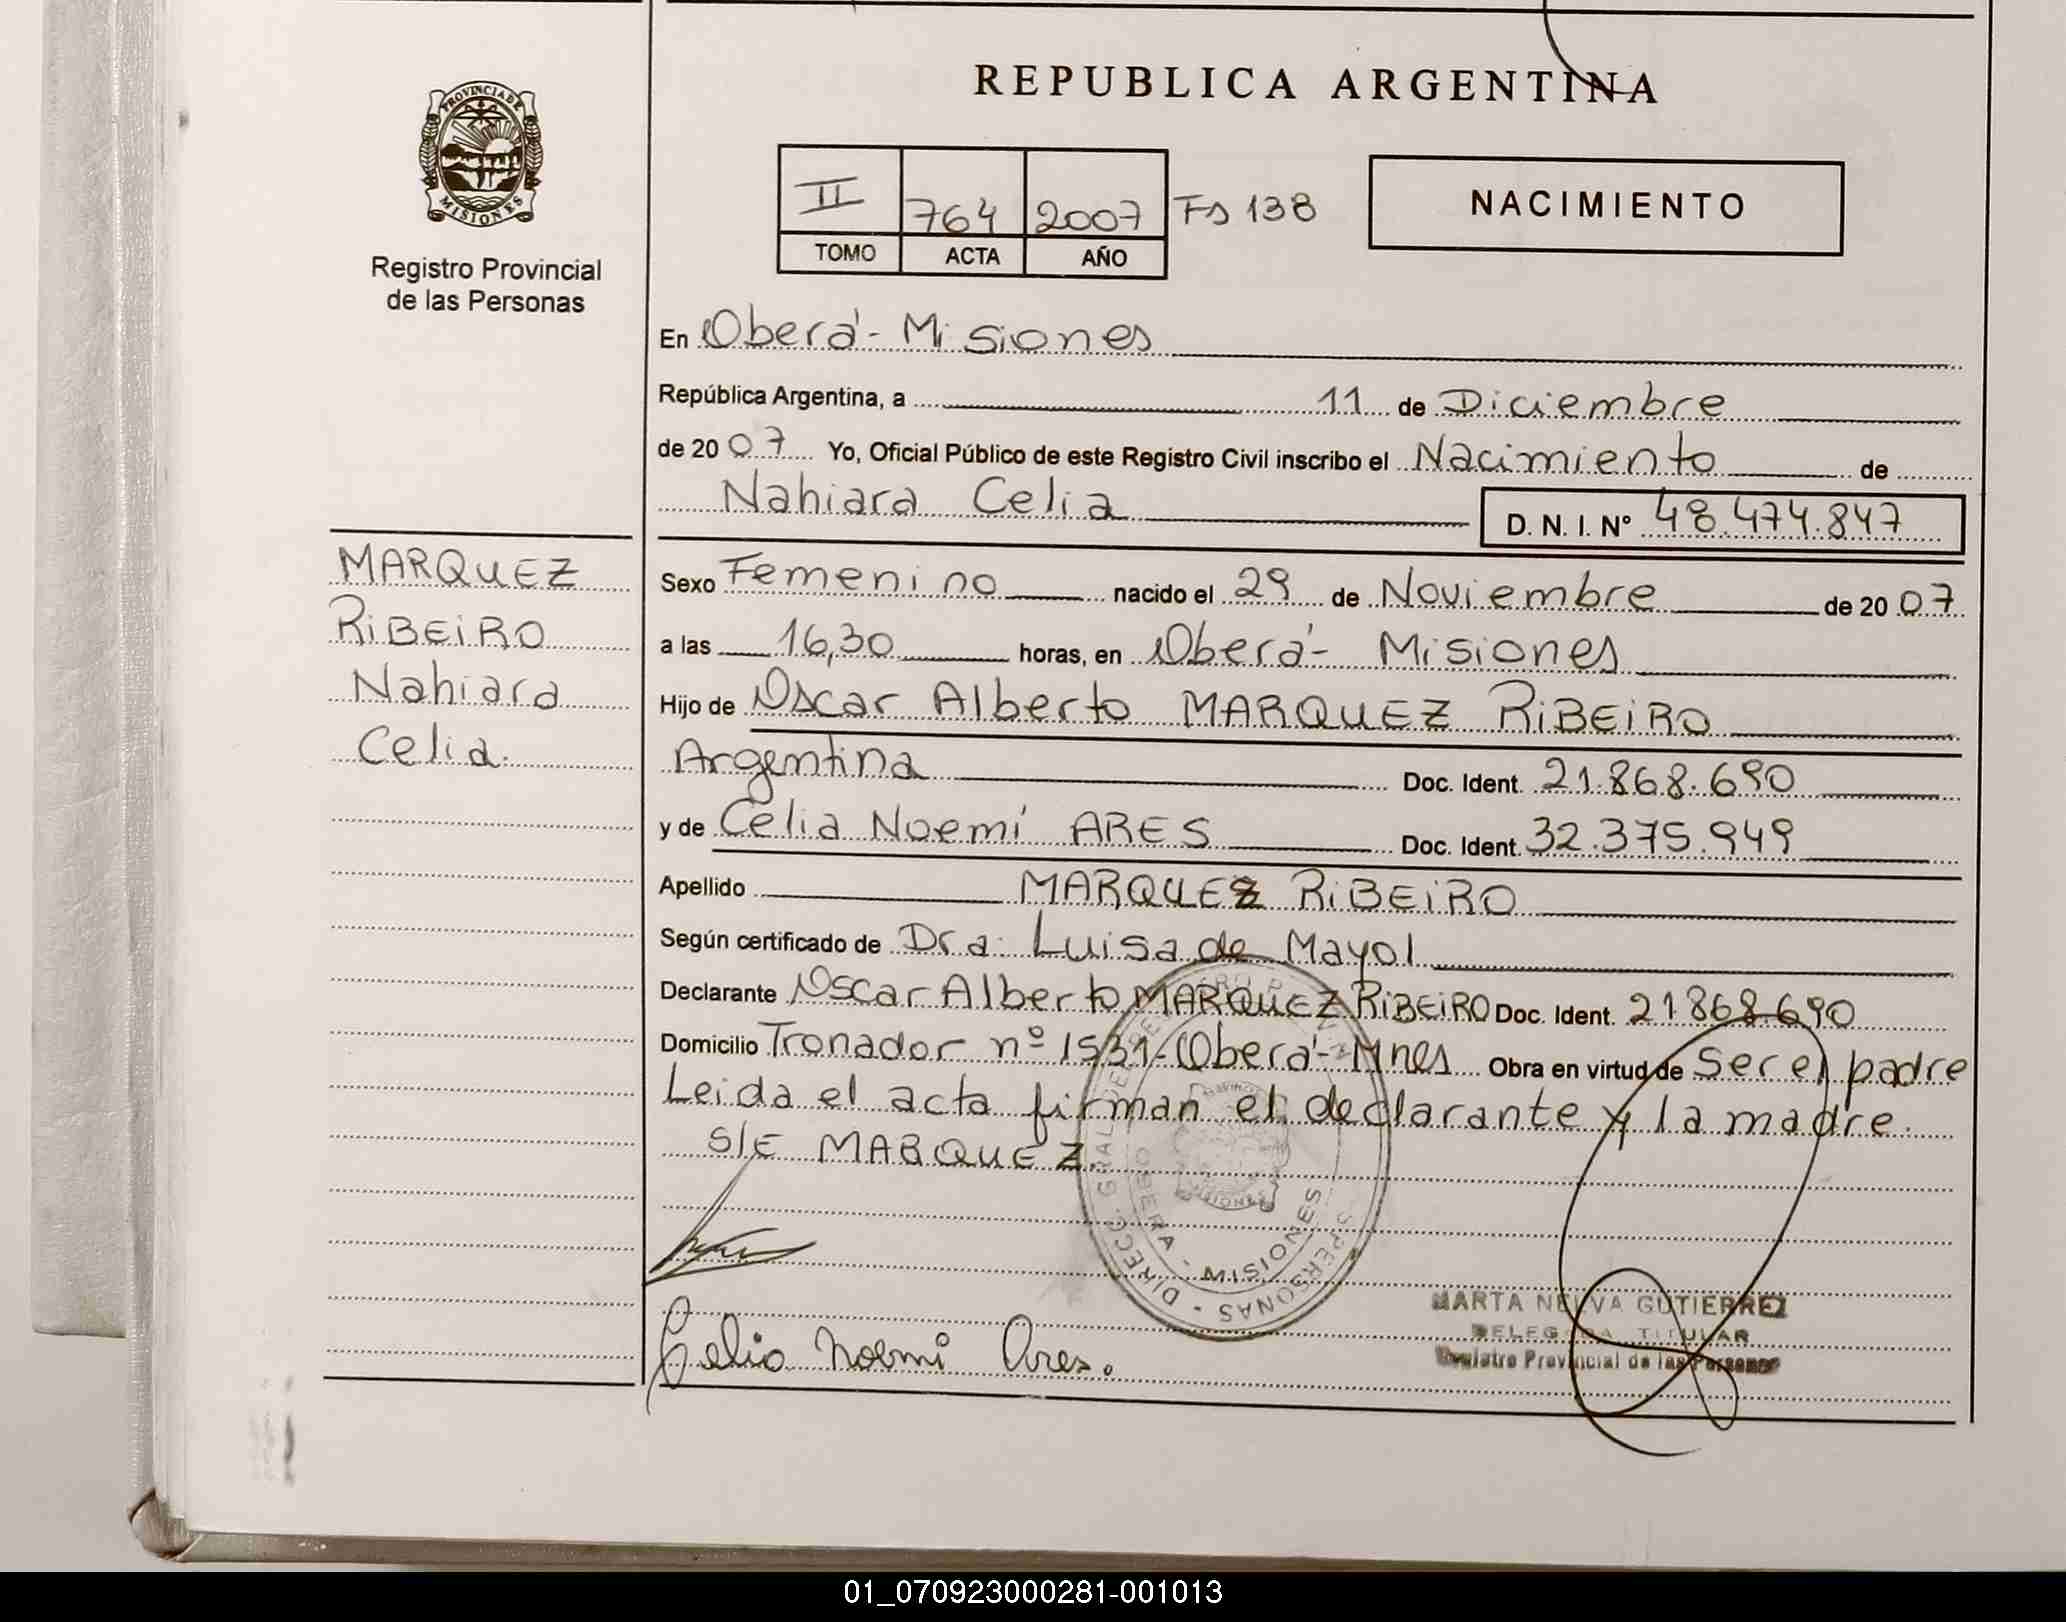 REPUBLICA ARGENTINA
PROVINCIA DE
MISIONES
Registro Provincial
de las Personas
II 764 2007 Fs 138
TOMO ACTA AÑO
NACIMIENTO
En Oberá - Misiones
República Argentina, a 11 de Diciembre
de 2007 Yo, Oficial Público de este Registro Civil inscribo el Nacimiento de
Nahiara Celia D. N. I. Nº 48.474.847
MARQUEZ
RiBEiRO
Nahiara
Celia.
Sexo Femenino nacido el 29 de Noviembre de 2007
a las 16,30 horas, en Oberá - Misiones
Hijo de Oscar Alberto MARQUEZ RiBEiRO
Argentina Doc. Ident. 21.868.690
y de Celia Noemí ARES Doc. Ident. 32.375.949
Apellido MARQUEZ RiBEiRO
Según certificado de Dra. Luisa de Mayol
Declarante Oscar Alberto MARQUEZ RiBEiRO Doc. Ident. 21868.690
Domicilio Tronador nº 1531 - Oberá - Mnes Obra en virtud de ser el padre
Leida el acta firman el declarante y la madre.
S/E MARQUEZ.
OBERA - MISIONES
Celia Noemi Ares.
MARTA NELVA GUTIERREZ
DELEGADA TITULAR
Registro Provincial de las Personas
01_070923000281-001013